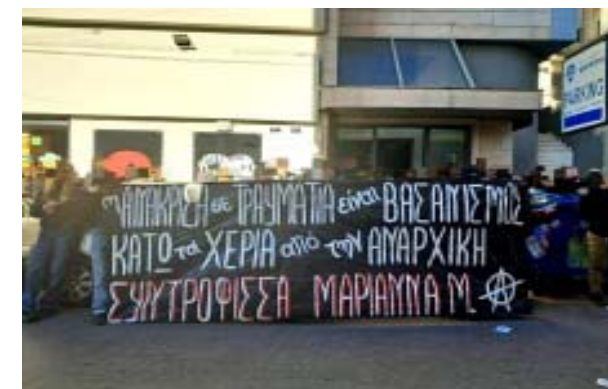 Η ΑΝΑΚΡΙΣΗ σε ΤΡΑΥΜΑΤΙΑ είναι ΒΑΣΑΝΙΣΜΟΣ
ΚΑΤΩ τα ΧΕΡΙΑ από την ΑΝΑΡΧΙΚΗ
ΣΥΝΤΡΟΦΙΣΣΑ ΜΑΡΙΑΝΝΑ Μ.
PARKING